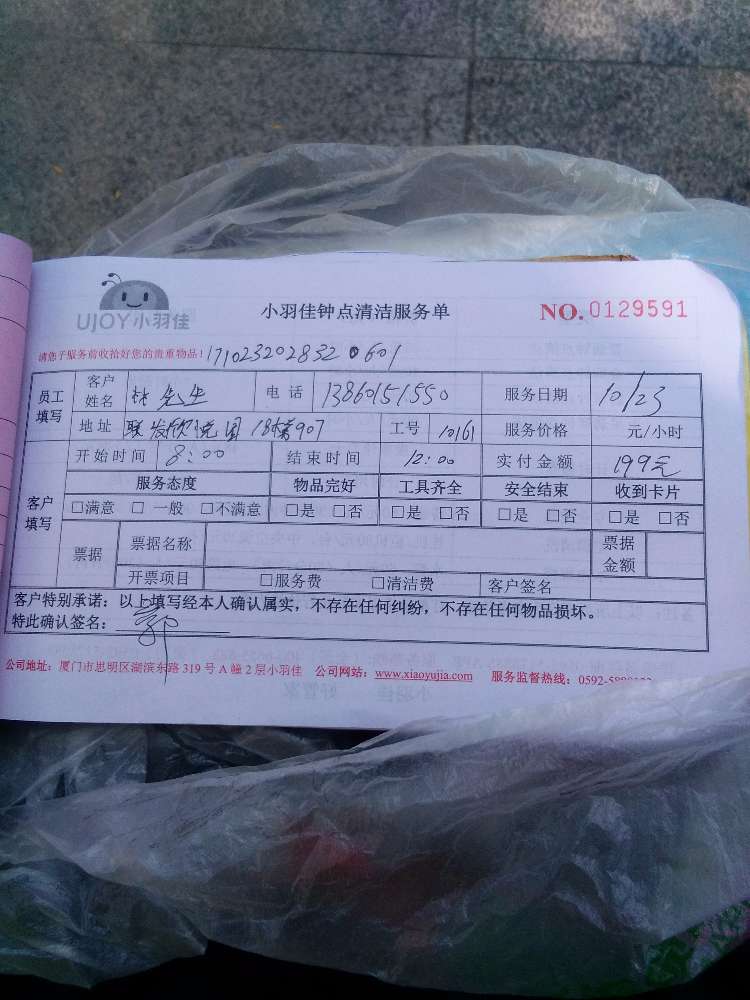 UJOY小羽佳
小羽佳钟点清洁服务单
NO. 0129591
请您于服务前收拾好您的贵重物品!
171023202832 0601
员工填写 客户姓名 林先生 电话 13860151550 服务日期 10/23
地址 联发欣悦园 18楼907 工号 10161 服务价格 元/小时
客户填写 开始时间 8:00 结束时间 12:00 实付金额 199元
服务态度 物品完好 工具齐全 安全结束 收到卡片
□满意 □一般 □不满意 □是 □否 □是 □否 □是 □否 □是 □否
票据 票据名称 票据金额
开票项目 □服务费 □清洁费 客户签名
客户特别承诺：以上填写经本人确认属实，不存在任何纠纷，不存在任何物品损坏。
特此确认签名：
公司地址：厦门市思明区湖滨东路 319 号 A 幢 2 层小羽佳 公司网站：www.xiaoyujia.com 服务监督热线：0592-